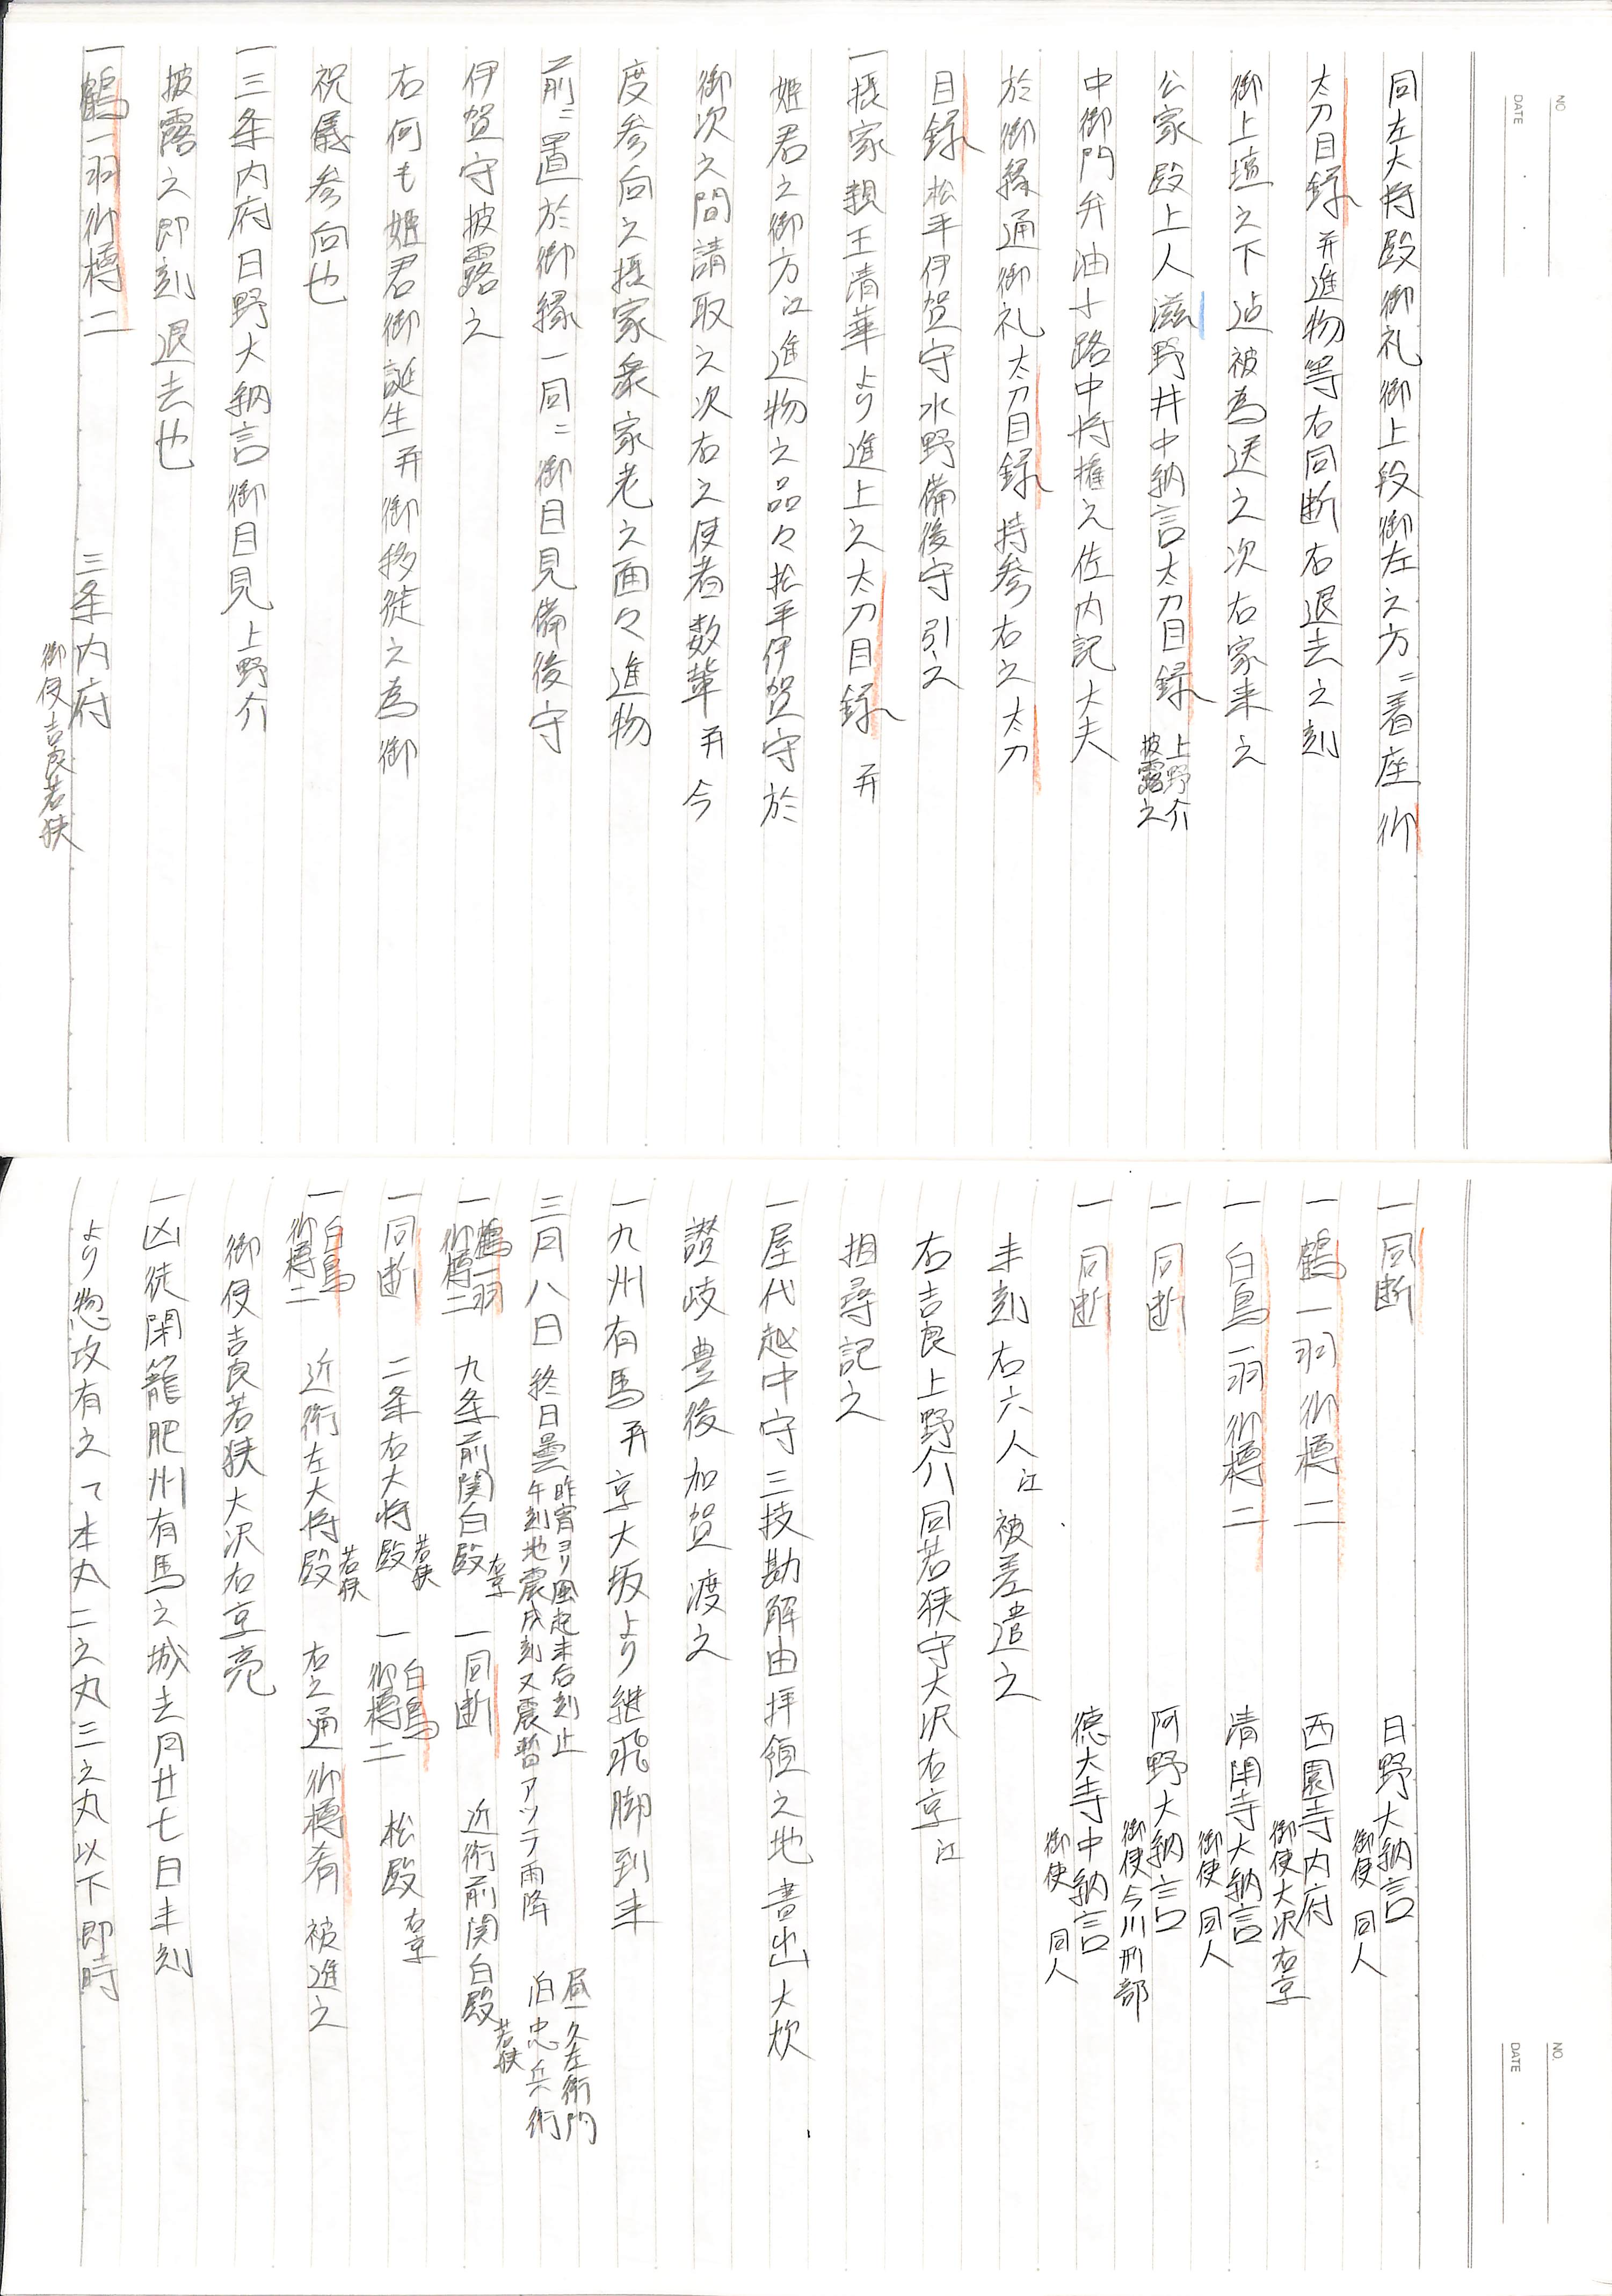 NO.
DATE
同左大将殿御礼御上段御左之方ニ着座御
太刀目録并進物等右同断右退去之刻
御上壇之下迠被為送之次右家来之
公家殿上人滋野井中納言太刀目録 上野介披露之
中御門弁油小路中将権之佐内記大夫
於御縁通御礼太刀目録持参右之太刀
目録松平伊賀守水野備後守引之
一摂家親王清華より進上之太刀目録并
姫君之御方江進物之品々松平伊賀守於
御次之間請取之次右之使者数輩并今
度参向之摂家衆家老之面々進物
前ニ置於御縁一同ニ御目見備後守
伊賀守披露之
右何も姫君御誕生并御移徒之為御
祝儀参向也
一三条内府日野大納言御目見上野介
披露之即刻退去也
一鶴一羽御樽二 三条内府 御使吉良若狭
NO.
DATE
一同断 日野大納言 御使同人
一鶴一羽御樽二 西園寺内府 御使大沢右京
一白鳥一羽御樽二 清閑寺大納言 御使同人
一同断 阿野大納言 御使今川刑部
一同断 徳大寺中納言 御使同人
未刻右六人江被差遣之
右吉良上野介同若狭守大沢右京江
相尋記之
一屋代越中守三枝勘解由拝領之地書出大炊
讃岐豊後加賀渡之
一九州有馬并京大坂より継飛脚到来
三月八日 終日曇 昨宵ヨリ風起未后刻止 午刻地震戌刻又震暫アツテ雨降 昼 久左衛門 泊 忠兵衛
一鶴一羽御樽二 九条前関白殿 右京 一同断 近衛前関白殿 若狭
一同断 二条右大将殿 若狭 一白鳥御樽二 松殿 右京
一白鳥御樽二 近衛左大将殿 若狭 右之通御樽肴被進之
御使吉良若狭大沢右京亮
一凶徒閉籠肥州有馬之城去月廿七日未刻
より惣攻有之て本丸二之丸三之丸以下即時